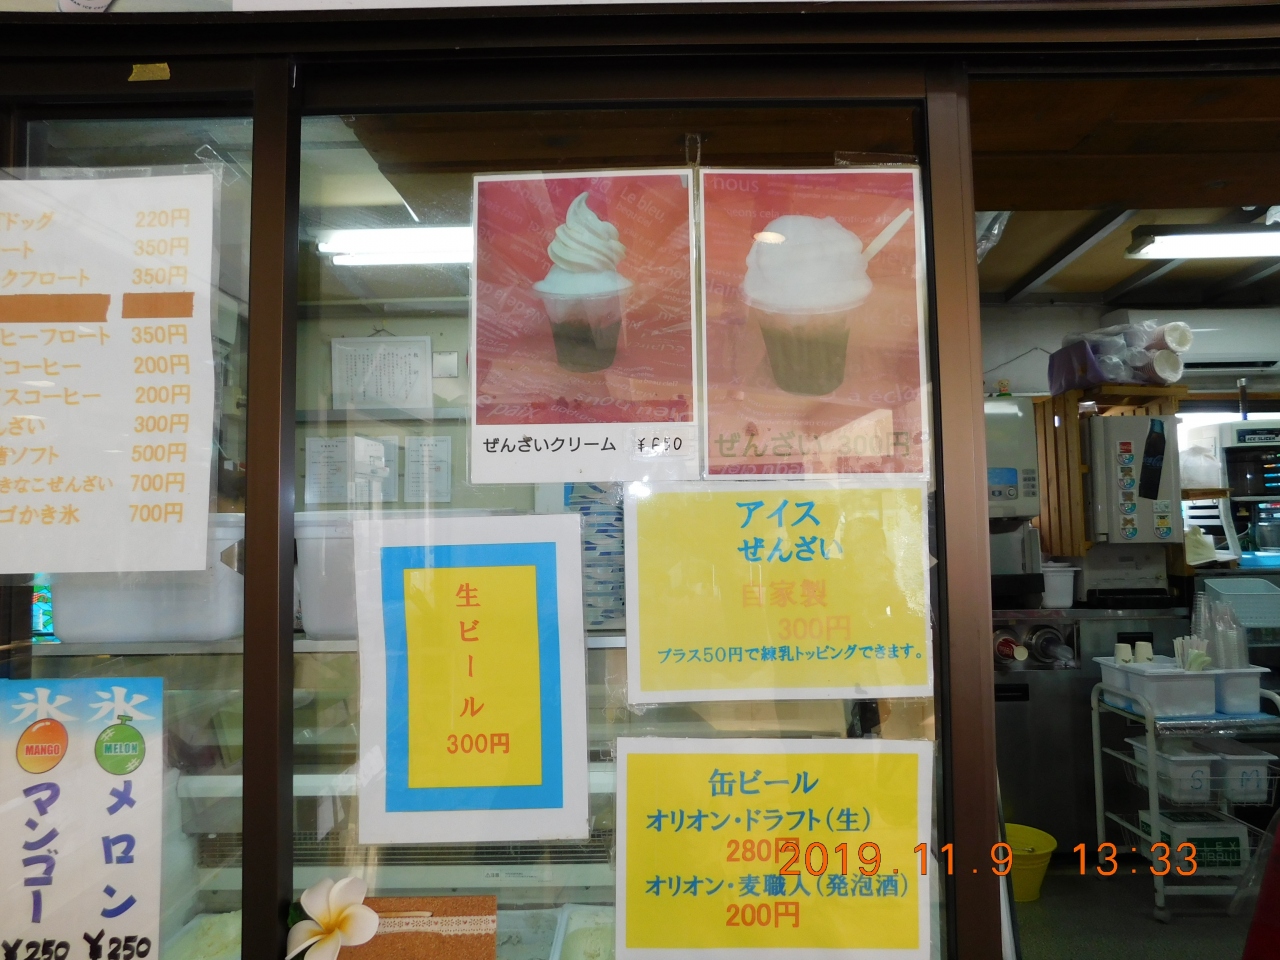 ドッグ 220円
ート 350円
クフロート 350円
ヒーフロート 350円
コーヒー 200円
スコーヒー 200円
んざい 300円
ソフト 500円
きなこぜんざい 700円
ゴかき氷 700円
ぜんざいクリーム
ぜんざい 300円
アイス
ぜんざい
自家製
300円
プラス50円で練乳トッピングできます。
生ビール
300円
缶ビール
オリオン・ドラフト(生)
280円
オリオン・麦職人(発泡酒)
200円
氷
MANGO
マンゴー
¥250
氷
MELON
メロン
¥250
S
M
2019.11.9 13:33